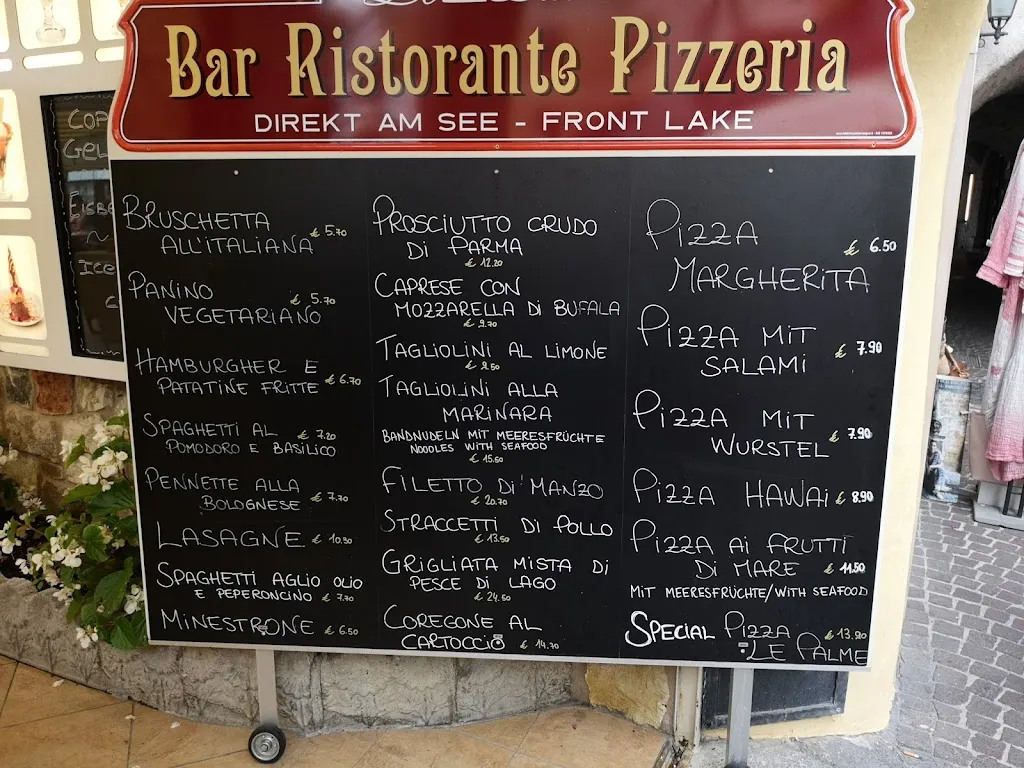 Bar Ristorante Pizzeria
DIREKT AM SEE - FRONT LAKE
COP
GEL
EISBE
ICE
C
BRUSCHETTA
ALL'ITALIANA € 5.70
PANINO
VEGETARIANO € 5.70
HAMBURGHER E
PATATINE FRITTE € 6.70
SPAGHETTI AL € 7.20
POMODORO E BASILICO
PENNETTE ALLA
BOLOGNESE € 7.70
LASAGNE € 10.90
SPAGHETTI AGLIO OLIO
E PEPERONCINO € 7.70
MINESTRONE € 6.50
PROSCIUTTO CRUDO
DI PARMA
€ 12.20
CAPRESE CON
MOZZARELLA DI BUFALA
€ 9.70
TAGLIOLINI AL LIMONE
€ 9.50
TAGLIOLINI ALLA
MARINARA
BANDNUDELN MIT MEERESFRÜCHTE
NOODLES WITH SEAFOOD
€ 15.50
FILETTO DI MANZO
€ 20.70
STRACCETTI DI POLLO
€ 13.50
GRIGLIATA MISTA DI
PESCE DI LAGO
€ 24.50
COREGONE AL
CARTOCCIO € 14.70
PIZZA € 6.50
MARGHERITA
PIZZA MIT
SALAMI € 7.90
PIZZA MIT
WURSTEL € 7.90
PIZZA HAWAI € 8.90
PIZZA AI FRUTTI
DI MARE € 11.50
MIT MEERESFRÜCHTE/WITH SEAFOOD
SPECIAL PIZZA € 13.90
LE PALME